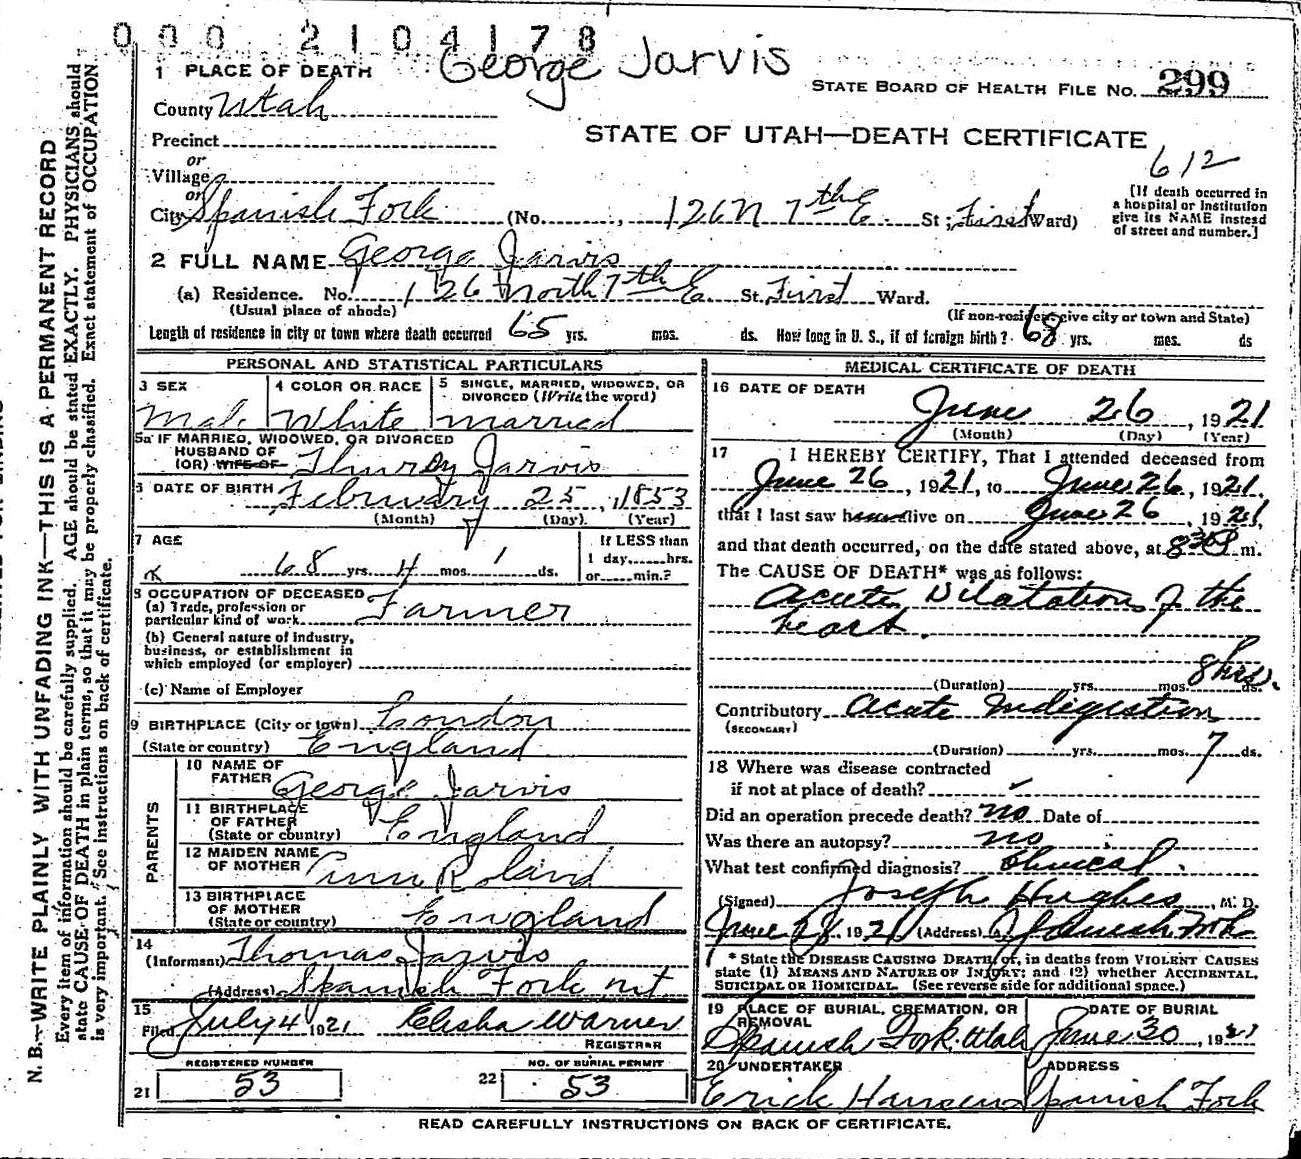 0002104178
George Jarvis
1 PLACE OF DEATH
STATE BOARD OF HEALTH FILE NO. 299
County Utah
STATE OF UTAH—DEATH CERTIFICATE
Precinct
612
or
Village
or
City Spanish Fork (No. 126 N 7th E. St; First Ward)
[If death occurred in a hospital or institution give its NAME instead of street and number.]
2 FULL NAME George Jarvis
(a) Residence. No. 126 North 7th E. St. First Ward.
(Usual place of abode) (If non-resident give city or town and State)
Length of residence in city or town where death occurred 65 yrs. mos. ds. How long in U. S., if of foreign birth? 68 yrs. mos. ds
PERSONAL AND STATISTICAL PARTICULARS
3 SEX Male
4 COLOR OR RACE White
5 SINGLE, MARRIED, WIDOWED, OR DIVORCED (Write the word) married
5a IF MARRIED, WIDOWED, OR DIVORCED
HUSBAND OF
(OR) WIFE OF Jarvis
6 DATE OF BIRTH February 25, 1853
(Month) (Day). (Year)
7 AGE 68 yrs. 4 mos. 1 ds.
If LESS than
1 day, hrs.
or min.?
8 OCCUPATION OF DECEASED
(a) Trade, profession or
particular kind of work Farmer
(b) General nature of industry,
business, or establishment in
which employed (or employer)
(c) Name of Employer
9 BIRTHPLACE (City or town) London
(State or country) England
PARENTS
10 NAME OF
FATHER George Jarvis
11 BIRTHPLACE
OF FATHER
(State or country) England
12 MAIDEN NAME
OF MOTHER
13 BIRTHPLACE
OF MOTHER
(State or country) England
14
(Informant) Thomas Jarvis
(Address) Spanish Fork
15
Filed July 4 1921 Elisha Warner
REGISTRAR
REGISTERED NUMBER
21 53
NO. OF BURIAL PERMIT
22 53
MEDICAL CERTIFICATE OF DEATH
16 DATE OF DEATH
June 26, 1921
(Month) (Day) (Year)
17 I HEREBY CERTIFY, That I attended deceased from
June 26, 1921, to June 26, 1921,
that I last saw h alive on June 26, 1921,
and that death occurred, on the date stated above, at 8 30 P m.
The CAUSE OF DEATH* was as follows:
Acute Dilatation of the
heart.
(Duration) yrs. mos. 8 hrs. ds.
Contributory Acute Indigestion
(SECONDARY)
(Duration) yrs. mos. 7 ds.
18 Where was disease contracted
if not at place of death?
Did an operation precede death? no Date of
Was there an autopsy? no
What test confirmed diagnosis? Clinical.
(Signed) Joseph Hughes, M. D.
June 28 1921 (Address) Spanish Fork
* State the DISEASE CAUSING DEATH, or, in deaths from VIOLENT CAUSES
state (1) MEANS AND NATURE OF INJURY; and (2) whether ACCIDENTAL,
SUICIDAL OR HOMICIDAL. (See reverse side for additional space.)
19 PLACE OF BURIAL, CREMATION, OR
REMOVAL
Spanish Fork. Utah
DATE OF BURIAL
June 30, 1921
20 UNDERTAKER
Erick Hansen
ADDRESS
Spanish Fork
READ CAREFULLY INSTRUCTIONS ON BACK OF CERTIFICATE.
N. B.—WRITE PLAINLY WITH UNFADING INK—THIS IS A PERMANENT RECORD
Every item of information should be carefully supplied. AGE should be stated EXACTLY. PHYSICIANS should
state CAUSE OF DEATH in plain terms, so that it may be properly classified. Exact statement of OCCUPATION
is very important. See instructions on back of certificate.